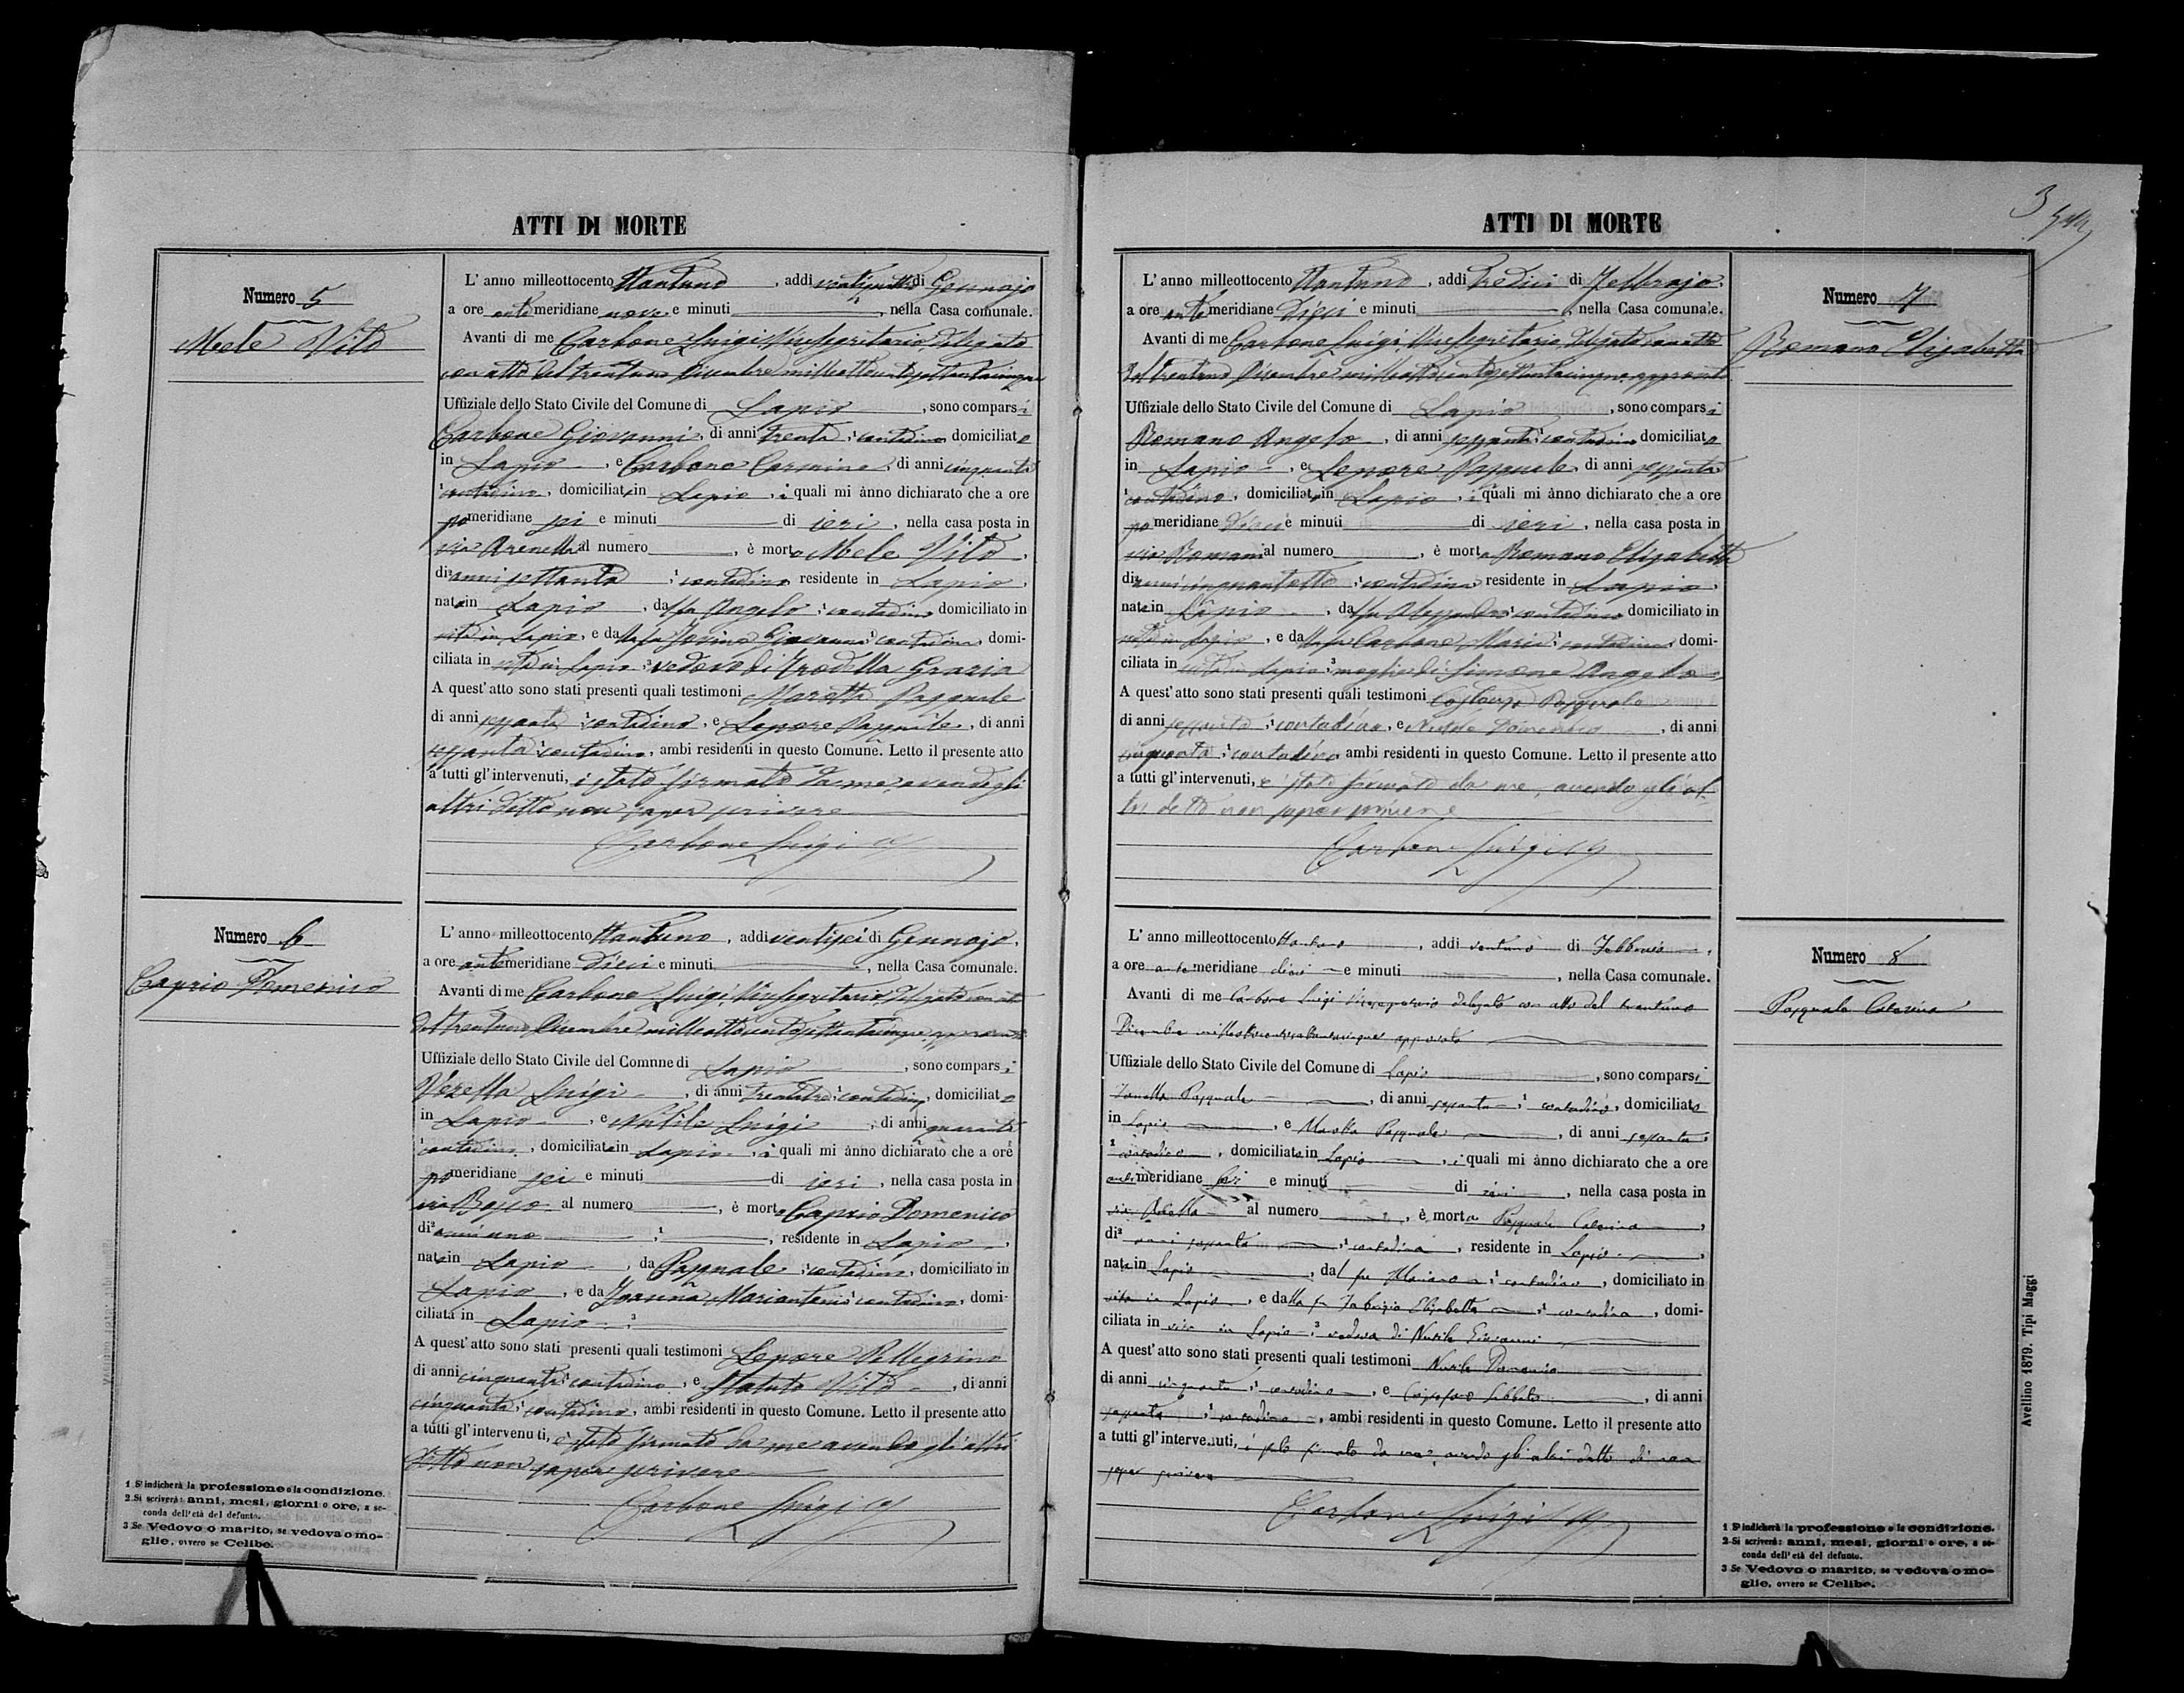 ATTI DI MORTE
Numero 5
Mele Vito
L' anno milleottocento ottantuno, addi di Gennajo
a ore antemeridiane nove e minuti , nella Casa comunale.
Avanti di me Carbone Luigi Vicesegretario delegato
con atto del trentuno Dicembre milleottocentosettantacinque
Uffiziale dello Stato Civile del Comune di Lapio, sono comparsi
Carbone Giovanni, di anni trenta, contadino domiciliato
in Lapio, e Carbone Carmine, di anni cinquanta
contadino, domiciliato in Lapio, i quali mi ànno dichiarato che a ore
pomeridiane sei e minuti di ieri, nella casa posta in
via Arenella al numero , è morto Mele Vito,
di anni settanta, contadino residente in Lapio,
nato in Lapio, da fu Angelo, contadino domiciliato in
vita in Lapio, e dalla fu Giovanna contadina, domi-
ciliata in vita in Lapio, vedovo di Trodella Grazia
A quest' atto sono stati presenti quali testimoni Marotta Pasquale
di anni sessanta, contadino, e Lepore Pasquale, di anni
sessanta contadino, ambi residenti in questo Comune. Letto il presente atto
a tutti gl' intervenuti, è stato firmato da me, avendo gli
altri detto non saper scrivere
Carbone Luigi
Numero 6
Caprio Domenico
L' anno milleottocento ottantuno, addi ventisei di Gennajo,
a ore antemeridiane dieci e minuti , nella Casa comunale.
Avanti di me Carbone Luigi Vicesegretario delegato con atto
del trentuno Dicembre milleottocentosettantacinque approvato
Uffiziale dello Stato Civile del Comnne di Lapio, sono comparsi
Vozella Luigi, di anni trentatre, contadino, domiciliato
in Lapio, e Nutile Luigi, di anni quaranta
contadino, domiciliato in Lapio, i quali mi ànno dichiarato che a ore
pomeridiane sei e minuti di ieri, nella casa posta in
via Bosco al numero , è morto Caprio Domenico
di anni uno , residente in Lapio,
nato in Lapio, da Pasquale, contadino, domiciliato in
Lapio, e da Mariantonia contadina, domi-
ciliata in Lapio
A quest' atto sono stati presenti quali testimoni Lepore Pellegrino
di anni cinquanta, contadino, e Statuto Vito, di anni
cinquanta, contadino, ambi residenti in questo Comune. Letto il presente atto
a tutti gl' intervenuti, è stato firmato da me avendo gli altri
detto non saper scrivere
Carbone Luigi
1 S' indicherà la professione o la condizione.
2 Si scriverà: anni, mesi, giorni o ore, a se-
conda dell'età del defunto.
3 Se Vedovo o marito, se vedova o mo-
glie, ovvero se Celibe.
3
ATTI DI MORTE
Numero 7
Romano Elisabetta
L' anno milleottocento ottantuno, addi tredici di Febbrajo,
a ore antemeridiane dieci e minuti , nella Casa comunale.
Avanti di me Carbone Luigi, Vicesegretario, delegato con atto
del trentuno Dicembre milleottocentosettantacinque approvato
Uffiziale dello Stato Civile del Comune di Lapio, sono comparsi
Romano Angelo, di anni sessanta, contadino domiciliato
in Lapio, e Lepore Pasquale, di anni sessanta
contadino, domiciliato in Lapio, i quali mi ànno dichiarato che a ore
pomeridiane dieci e minuti di ieri, nella casa posta in
via Romani al numero , è morta Romano Elisabetta
di anni cinquantotto, contadina residente in Lapio,
nata in Lapio, dal fu contadino domiciliato in
vita in Lapio, e dalla fu Carbone Maria, contadina, domi-
ciliata in vita in Lapio, moglie di Simone Angelo
A quest' atto sono stati presenti quali testimoni Costanza Pasquale
di anni sessanta, contadino, e Nutile Domenico, di anni
cinquanta, contadino, ambi residenti in questo Comune. Letto il presente atto
a tutti gl' intervenuti, è stato firmato da me, avendo gli al-
tri detto non saper scrivere
Carbone Luigi
Numero 8
Pasquale Caterina
L' anno milleottocento ottantuno, addi ventuno di Febbraio,
a ore antemeridiane dieci e minuti , nella Casa comunale.
Avanti di me Carbone Luigi Vicesegretario delegato con atto del trentuno
Dicembre milleottocentosettantacinque approvato
Uffiziale dello Stato Civile del Comune di Lapio, sono comparsi
Pasquale, di anni sessanta, contadino, domiciliato
in Lapio, e Marotta Pasquale, di anni sessanta
contadino, domiciliato in Lapio, i quali mi ànno dichiarato che a ore
antimeridiane sei e minuti di ieri, nella casa posta in
via al numero , è morta Pasquale Caterina,
di anni sessanta, contadina, residente in Lapio,
nata in Lapio, dal fu Mariano, contadino, domiciliato in
vita in Lapio, e dalla fu Fabrizio Elisabetta, contadina, domi-
ciliata in vita in Lapio, vedova di Nutile Giovanni
A quest' atto sono stati presenti quali testimoni Nutile Domenico
di anni cinquanta, contadino, e Sabbato, di anni
sessanta, contadino, ambi residenti in questo Comune. Letto il presente atto
a tutti gl' intervenuti, è stato firmato da me, avendo gli altri detto di non
saper scrivere
Carbone Luigi
1 S' indicherà la professione o la condizione.
2 Si scriverà: anni, mesi, giorni o ore, a se-
conda dell'età del defunto.
3 Se Vedovo o marito, se vedova o mo-
glie, ovvero se Celibe.
Avellino 1879. Tipi Maggi